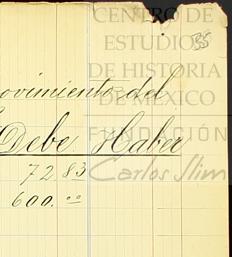 CENTRO DE
ESTUDIOS
DE HISTORIA
DE MÉXICO
FUNDACIÓN
Carlos Slim
35
ovimiento del
Debe Haber
72.83
600.00